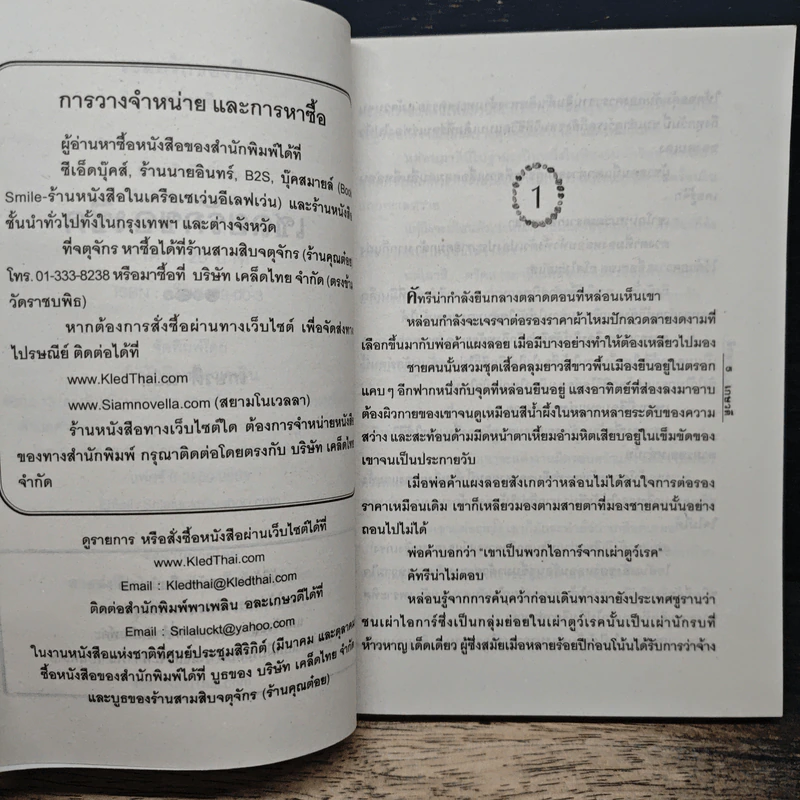 การวางจำหน่าย และการหาซื้อ
ผู้อ่านหาซื้อหนังสือของสำนักพิมพ์ได้ที่
ซีเอ็ดบุ๊คส์, ร้านนายอินทร์, B2S, บุ๊คสมายล์ (Book
Smile-ร้านหนังสือในเครือเซเว่นอีเลฟเว่น) และร้านหนังสือ
ชั้นนำทั่วไปทั้งในกรุงเทพฯ และต่างจังหวัด
ที่จตุจักร หาซื้อได้ที่ร้านสามสิบจตุจักร (ร้านคุณต๋อย
โทร. 01-333-8238 หรือมาซื้อที่ บริษัท เคล็ดไทย จำกัด (ตรงข้าม
วัดราชบพิธ)
หากต้องการสั่งซื้อผ่านทางเว็บไซต์ เพื่อจัดส่งทาง
ไปรษณีย์ ติดต่อได้ที่
www.KledThai.com
www.Siamnovella.com (สยามโนเวลลา)
ร้านหนังสือทางเว็บไซต์ใด ต้องการจำหน่ายหนังสือ
ของทางสำนักพิมพ์ กรุณาติดต่อโดยตรงกับ บริษัท เคล็ดไทย
จำกัด
ดูรายการ หรือสั่งซื้อหนังสือผ่านเว็บไซต์ได้ที่
www.KledThai.com
Email : Kledthai@Kledthai.com
ติดต่อสำนักพิมพ์พาเพลิน อละเกษวดีได้ที่
Email : Srilaluckt@yahoo.com
ในงานหนังสือแห่งชาติที่ศูนย์ประชุมสิริกิติ์ (มีนาคม และตุลาคม
ซื้อหนังสือของสำนักพิมพ์ได้ที่ บูธของ บริษัท เคล็ดไทย จำกัด
และบูธของร้านสามสิบจตุจักร (ร้านคุณต๋อย)
1
คัทรีน่ากำลังยืนกลางตลาดตอนที่หล่อนเห็นเขา
หล่อนกำลังจะเจรจาต่อรองราคาผ้าไหมปักลวดลายงดงามที่
เลือกขึ้นมากับพ่อค้าแผงลอย เมื่อมีบางอย่างทำให้ต้องเหลียวไปมอง
ชายคนนั้นสวมชุดเสื้อคลุมยาวสีขาวพื้นเมืองยืนอยู่ในตรอก
แคบๆ อีกฟากหนึ่งกับจุดที่หล่อนยืนอยู่ แสงอาทิตย์ที่ส่องลงมาอาบ
ต้องผิวกายของเขาจนดูเหมือนสีน้ำผึ้งในหลากหลายระดับของความ
สว่าง และสะท้อนด้ามมีดหน้าตาเหี้ยมอำมหิตเสียบอยู่ในเข็มขัดของ
เขาจนเป็นประกายวับ
เมื่อพ่อค้าแผงลอยสังเกตว่าหล่อนไม่ได้สนใจการต่อรอง
ราคาเหมือนเดิม เขาก็เหลียวมองตามสายตาที่มองชายคนนั้นอย่าง
ถอนไปไม่ได้
พ่อค้าบอกว่า "เขาเป็นพวกไอการ์จากเผ่าตูว์เรค"
คัทรีน่าไม่ตอบ
หล่อนรู้จากการค้นคว้าก่อนเดินทางมายังประเทศซูรานว่า
ชนเผ่าไอการ์ซึ่งเป็นกลุ่มย่อยในเผ่าตูว์เรคนั้นเป็นเผ่านักรบที่
ห้าวหาญ เด็ดเดี่ยว ผู้ซึ่งสมัยเมื่อหลายร้อยปีก่อนโน้นได้รับการว่าจ้าง
๕ เกษวดี